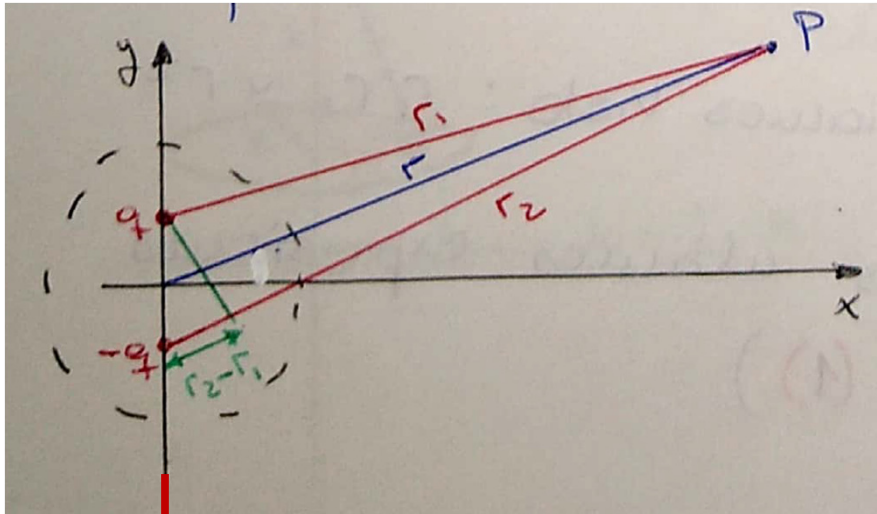 y
P
r₁
r
r₂
q
x
-q
r₂-r₁
(1)